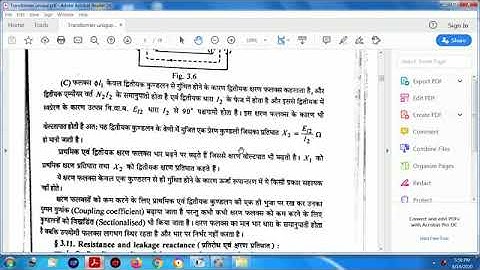 Transformer unique.pdf - Adobe Acrobat Reader DC
Home Tools
Sign In
Share
Fig. 3.6
(C) फ्लक्स ϕl₂ केवल द्वितीयक कुण्डलन से गुंथित होने के कारण द्वितीयक क्षरण फ्लक्स कहलाता है, और
द्वितीयक एम्पीयर वर्त N₂I₂ के समानुपाती होता है एवं द्वितीयक धारा I₂ के फेज में होता है और इससे द्वितीयक में
स्वप्रेरण के कारण उत्पन्न वि.वा.ब. El₂ धारा I₂ से 90° पश्चगामी होता है। इस क्षरण फ्लक्स के कारण भी
वोल्टतापात होती है अतः यह द्वितीयक कुण्डलन के श्रेणी में जुड़ित एक प्रेरण कुण्डली जिसका प्रतिघात X₂ = El₂/I₂ Ω
हो मानी जाती है।
प्राथमिक एवं द्वितीयक क्षरण फ्लक्स भार बढ़ने पर बढ़ते हैं जिससे क्षरण वोल्टपात भी बढ़ता है। X₁ को
प्राथमिक क्षरण प्रतिघात तथा X₂ को द्वितीयक क्षरण प्रतिघात कहते हैं।
ये क्षरण फ्लक्स केवल एक कुण्डलन से ही गुंथित होने के कारण ऊर्जा रूपान्तरण में ये किसी प्रकार सहायक
नहीं होते।
क्षरण फ्लक्सों को कम करने के लिए प्राथमिक एवं द्वितीयक कुण्डलन को एक ही भुजा पर रख कर उनका
युग्मन गुणांक (Coupling coefficient) बढ़ाया जाता है परन्तु कभी कभी क्षरण फ्लक्स को कम करने के लिए
कुण्डलनों को विखंडित (Sectionalised) भी किया जाता है। क्षरण फ्लक्स का मान भार धारा के समानुपाती होता
है जबकि उपयोगी फ्लक्स लगभग स्थिर रहता है और भार पर निर्भर नहीं करता है।
§ 3.11. Resistance and leakage reactance (प्रतिरोध एवं क्षरण प्रतिघात) :
Export PDF
Edit PDF
Create PDF
Comment
Combine Files
Organize Pages
Convert and edit PDFs
with Acrobat Pro DC
5:50 PM